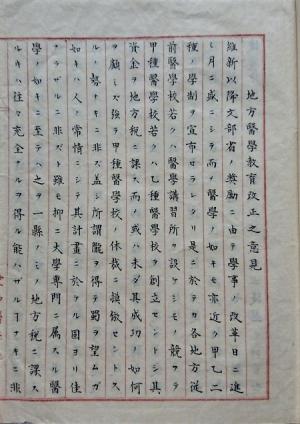 地方醫學教育改正之意見
維新以降文部省ノ奬勵ニ由テ學事ノ改革日ニ進
ミ月ニ盛ニシテ而メ醫學ノ如キモ亦近ク甲乙二
種ノ學制ヲ宣布セラレタリ是ニ於テカ各地方從
前醫學校若クハ醫學講習所ノ設ケシモノ競フテ
甲種醫學校若クハ乙種醫學校ヲ創立セントシ其
資金ヲ地方税ニ課スル而メ或ハ未タ其成功ノ如何
ヲ顧ミス強テ甲種醫學校ノ休裁ニ模倣セントス
ルノ勢ナキニ非ズ蓋シ所謂隴ヲ得テ蜀ヲ望ムガ
如キハ人ノ常情ニシテ其計畫ニ於テハ固ヨリ佳
ナラザルニ非ズト雖モ抑ニ大學專門ニ属スル醫
學ノ如キニ至テハ之ヲ一縣ノミノ地方税ニ課ス
ルキハ往々完全ナルヲ得ル能ハザルヿナキニ非